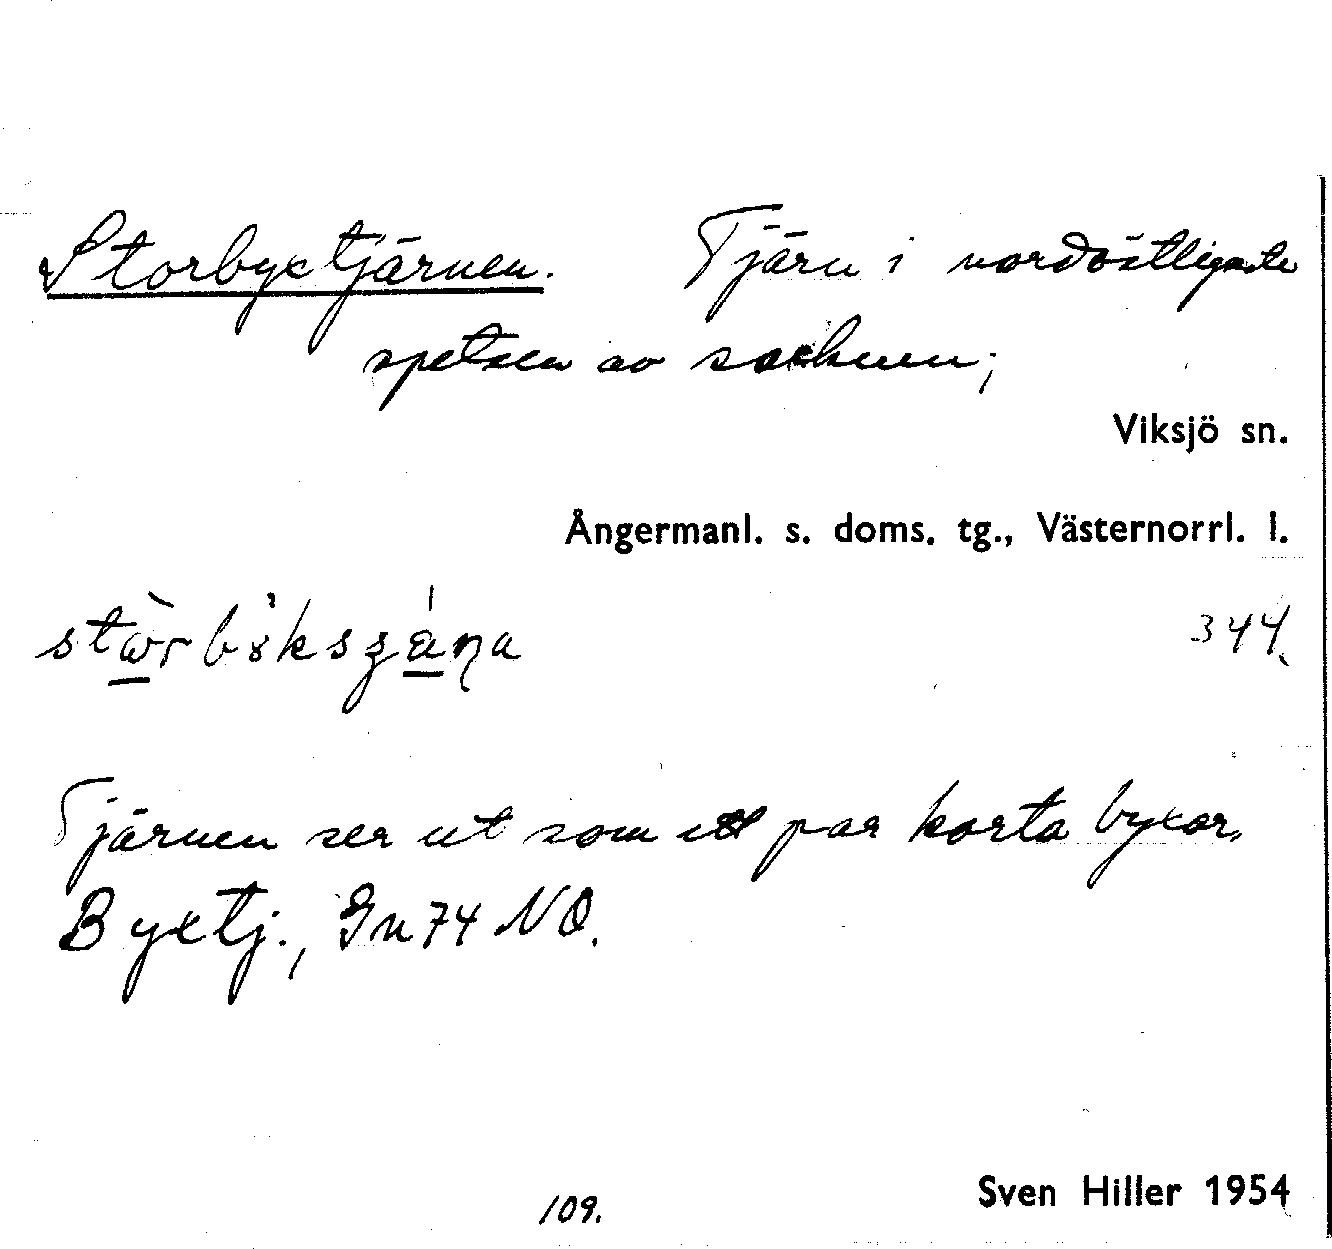 Storbyxtjärnen. Tjärn i nordöstligaste
spetsen av socknen;
Viksjö sn.
Ångermanl. s. doms. tg., Västernorrl. l.
344.
Tjärnen ser ut som ett par korta byxor.
Byxtj., Gn 74 NO.
109.
Sven Hiller 1954